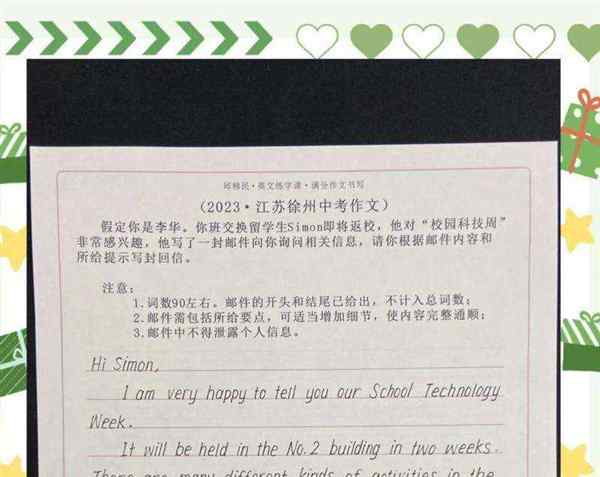 邱移民·英文练字课·满分作文书写
(2023·江苏徐州中考作文)
假定你是李华。你班交换留学生Simon即将返校，他对“校园科技周”
非常感兴趣，他写了一封邮件向你询问相关信息，请你根据邮件内容和
所给提示写封回信。
注意：
1.词数90左右。邮件的开头和结尾已给出，不计入总词数；
2.邮件需包括所给要点，可适当增加细节，使内容完整通顺；
3.邮件中不得泄露个人信息。
Hi Simon,
I am very happy to tell you our School Technology
Week.
It will be held in the No.2 building in two weeks.
There are many different kinds of activities in the